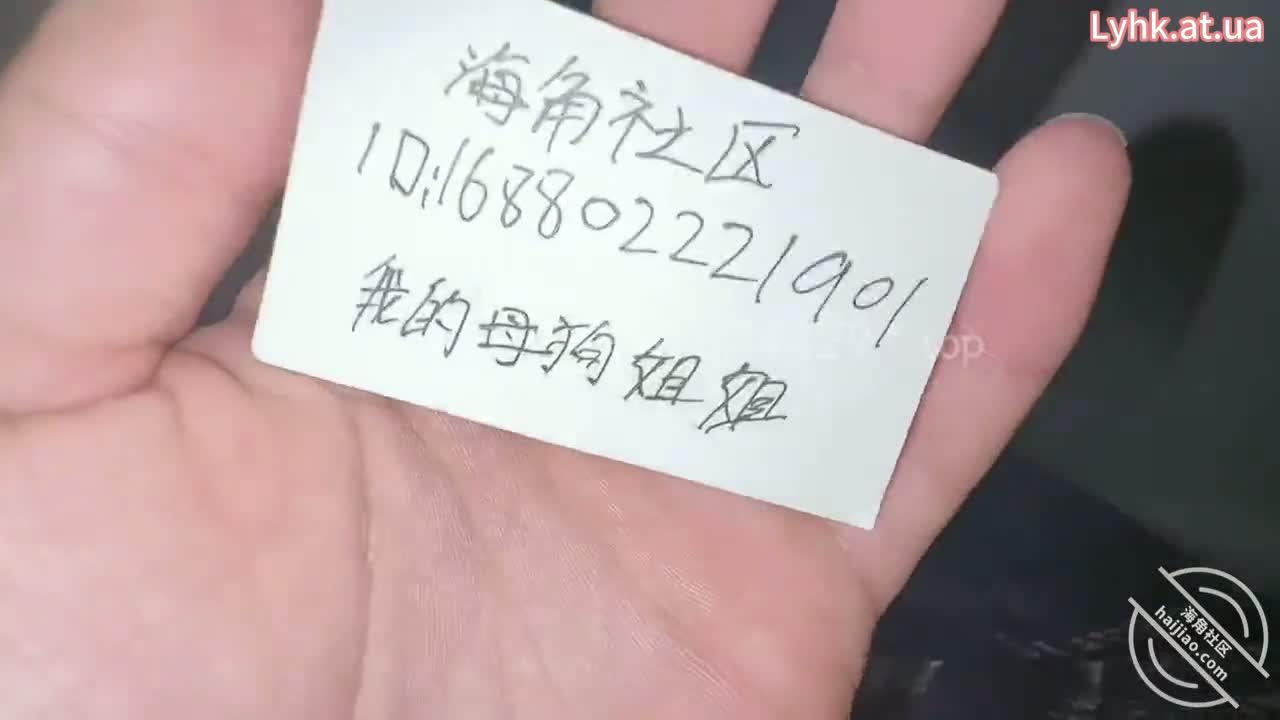 Lyhk.at.ua
海角社区
ID:168802221901
我的母狗姐姐
top
海角社区
haijiao.com